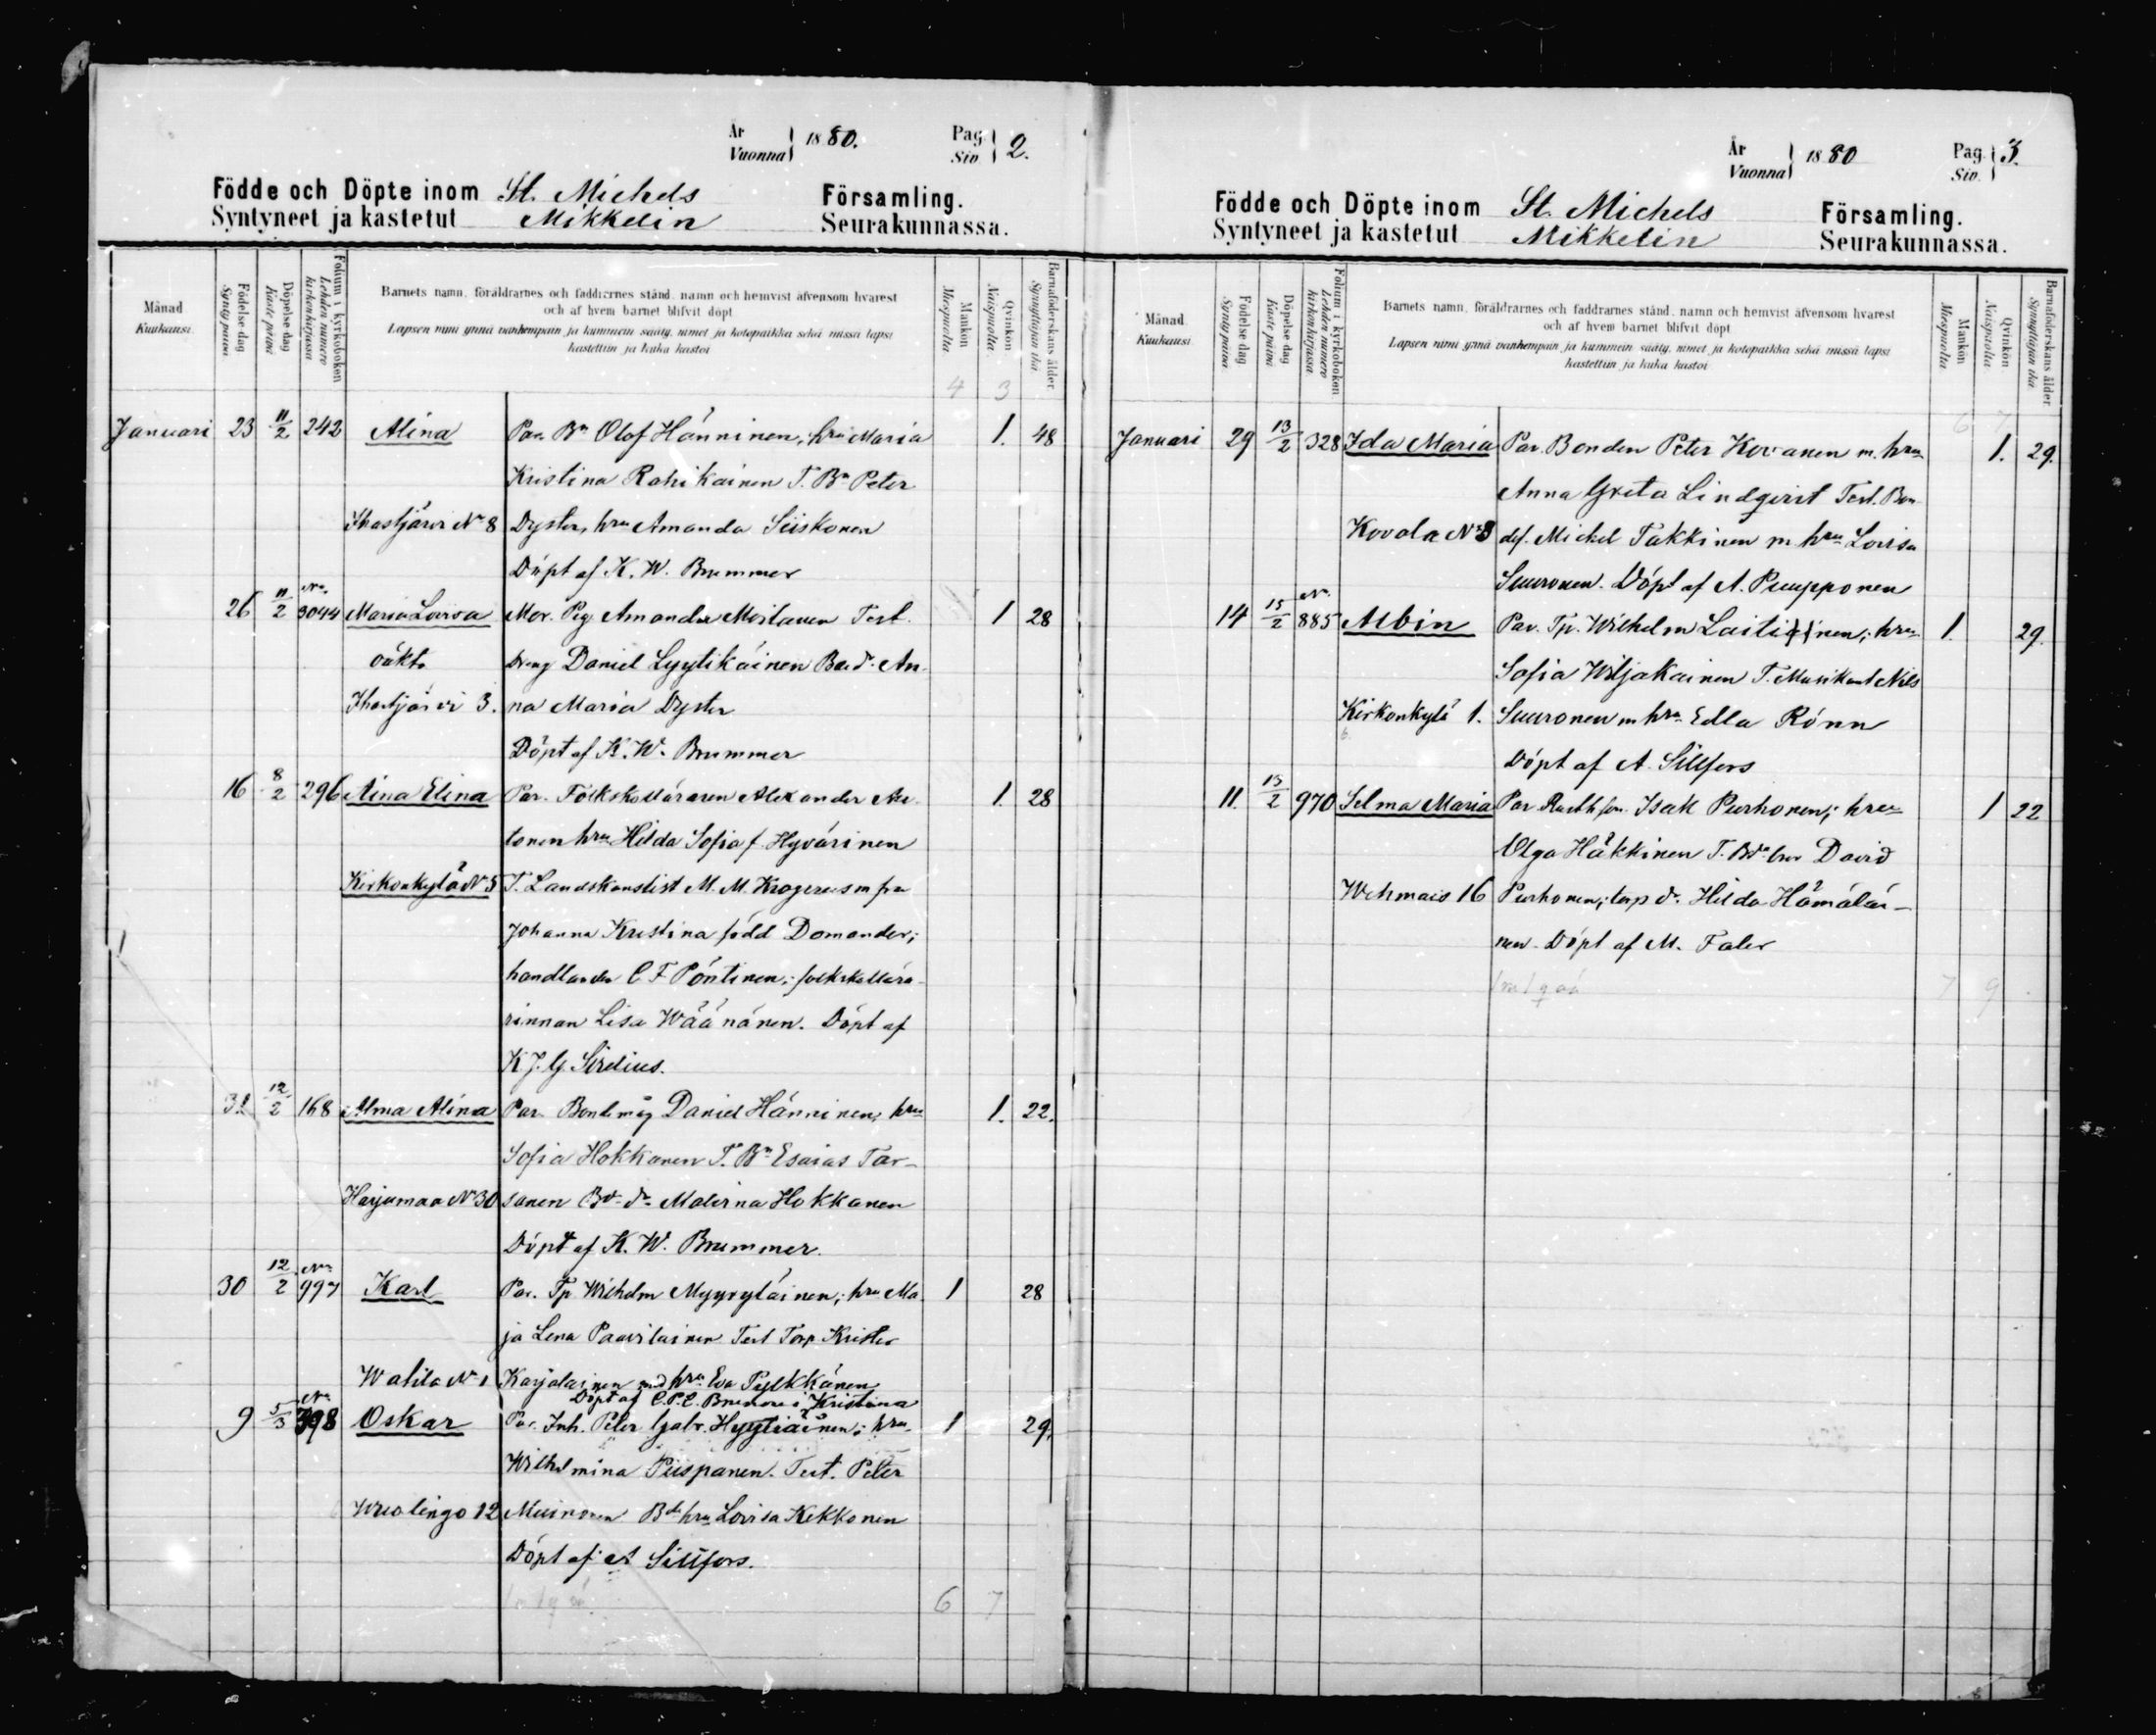 År
Vuonna } 1880.
Pag.
Siv. } 2.
Födde och Döpte inom St. Michels Församling.
Syntyneet ja kastetut Mikkelin Seurakunnassa.
Månad
Kuukausi
Födelse dag
Synty päivä
Döpelse dag
Kaste päivä
Folium i kyrkoboken
Lehden numero
kirkonkirjassa
Barnets namn, föräldrarnes och faddrarnes stånd, namn och hemvist äfvensom hvarest
och af hvem barnet blifvit döpt
Lapsen nimi ynnä vanhempain ja kummein sääty, nimet ja kotopaikka sekä missä lapsi
kastettiin ja kuka kastoi
Mankön
Miespuolta
Qvinkön
Naispuolta
Barnaföderskans ålder
Synnyttäjän ikä
4 3
Januari 23 11/2 242 Alina Par. Bn Olof Hänninen; hru Maria 1. 48
Kristina Rahikainen T. Bn Peter
Ihastjärvi No 8 Dyster, hru Amanda Siiskonen
Döpt af K. W. Brummer
26 11/2 No 3044 Maria Lovisa Mor. Pig. Amanda Moilanen Test. 1 28
oäkta Dreng Daniel Lyytikäinen Bo.dr. An-
Ihastjärvi 3. na Maria Dyster
Döpt af K. W. Brummer
16 8/2 296 Aina Elina Par. Folkskolläraren Alexander 1. 28
tonen hru Hilda Sofia f. Hyvärinen
Kirkonkylä No 5 T. Landskanslist M. M. Krogerus m fru
Johanna Kristina född Domander;
handlanden C F Pöntinen; folkskollära-
rinnan Lisa Wäänänen. Döpt af
K. J. G. Sirelius.
31 12/2 168 Alma Alina Par. Bondmåg Daniel Hänninen, hru 1. 22.
Sofia Hokkanen T. Bn Esaias Tar-
Harjumaa No 30 sanen Bd. dr. Malviina Hokkanen
Döpt af K. W. Brummer.
30 12/2 No 997 Karl Par. Tp Wilhelm Myyryläinen; hru Ma- 1 28
ja Lena Paavilainen Test Torp Krister
Watila No 1 Karjalainen med hru Eva Pylkkänen
Döpt af Kristina
9 5/3 No 398 Oskar Par. Inh. Peter Gabr. Hyytiäinen; hru 1 29.
Wilhelmina Piispanen. Test. Peter
12 Muinonen Bd hru Lovisa Kekkonen
Döpt af A Sillfors.
6 7
År
Vuonna } 1880
Pag.
Siv. } 3.
Födde och Döpte inom St. Michels Församling.
Syntyneet ja kastetut Mikkelin Seurakunnassa.
Månad
Kuukausi
Födelse dag
Synty päivä
Döpelse dag
Kaste päivä
Folium i kyrkoboken
Lehden numero
kirkonkirjassa
Barnets namn, föräldrarnes och faddrarnes stånd, namn och hemvist äfvensom hvarest
och af hvem barnet blifvit döpt
Lapsen nimi ynnä vanhempain ja kummein sääty, nimet ja kotopaikka sekä missä lapsi
kastettiin ja kuka kastoi
Mankön
Miespuolta
Qvinkön
Naispuolta
Barnaföderskans ålder
Synnyttäjän ikä
6 7
Januari 29 13/2 328 Ida Maria Par. Bonden Peter Kovanen m. hru 1. 29.
Anna Greta Lindqvist Test. Bon-
Kovala No 8 des. Michel Takkinen m hru Lovisa
Suuronen. Döpt af A. Puupponen
14 15/2 No 885 Albin Par. Tp. Wilhelm Laitinen; hru 1. 29.
Sofia Wiljakainen T. Musikant Nils
Kirkonkylä 1. Suuronen m hru Edla Rönn
6.
Döpt af A. Sillfors
11. 15/2 970 Selma Maria Par Isak Purhonen; hru 1 22
Olga Häkkinen T. David
Wehmais 16 Purhonen; torp dr. Hilda Hämäläi-
nen. Döpt af M. Faler
7 9